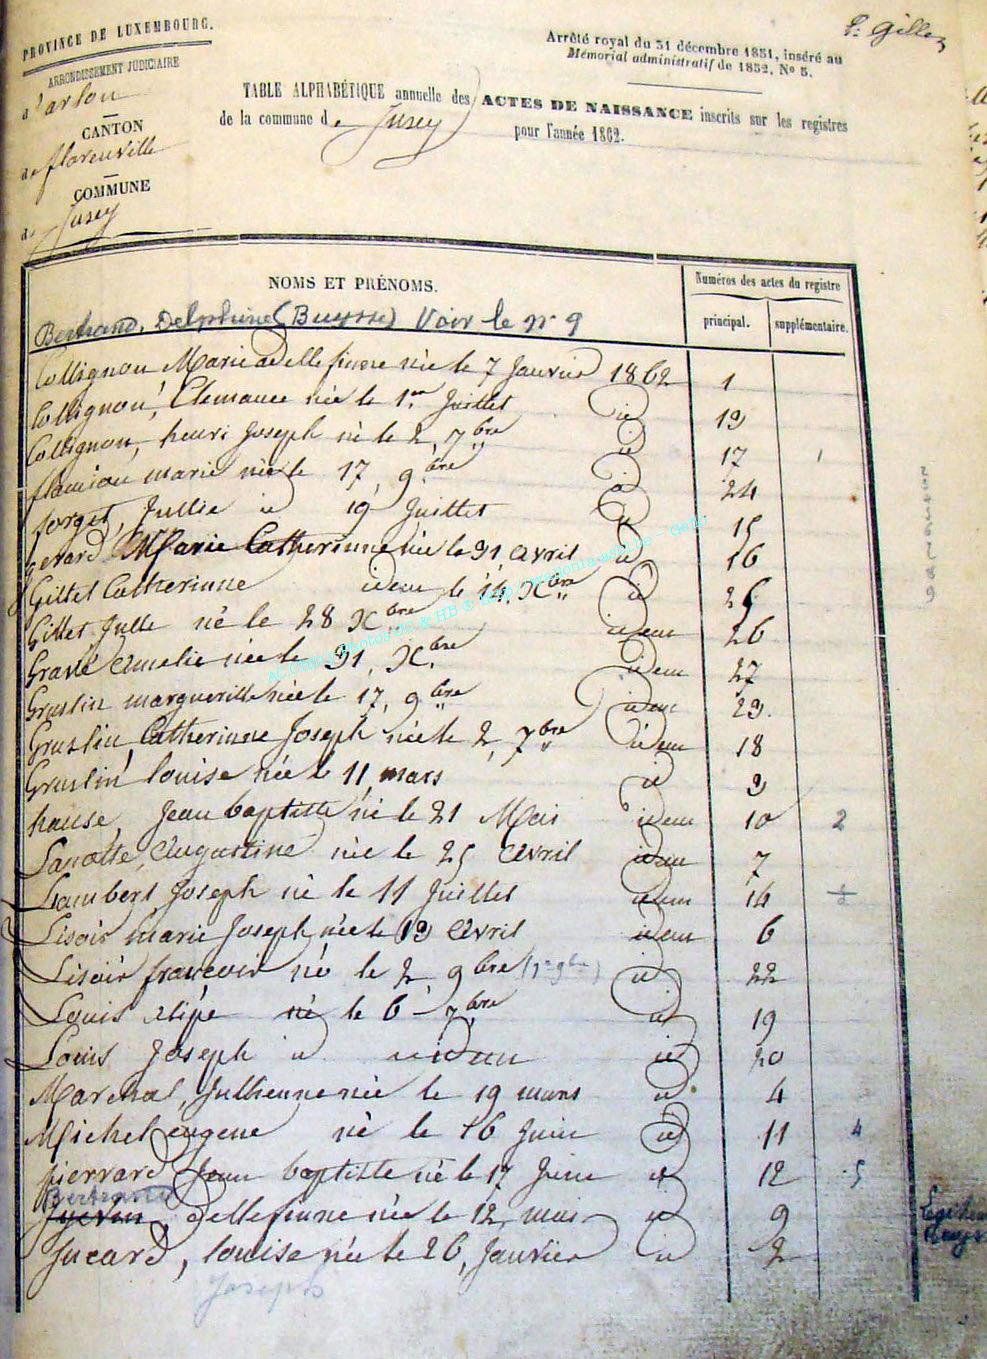 G. Gillez
PROVINCE DE LUXEMBOURG.
ARRONDISSEMENT JUDICIAIRE
d'arlon
CANTON
de florenville
COMMUNE
de Jusey
Arrêté royal du 31 décembre 1851, inséré au
Mémorial administratif de 1852, No 5.
TABLE ALPHABÉTIQUE annuelle des ACTES DE NAISSANCE inscrits sur les registres
de la commune de Jusey
pour l'année 1862.
NOMS ET PRÉNOMS.
Numéros des actes du registre
principal.
supplémentaire.
Bertrand, Delphine (Buysse) Voir le no 9
Collignon Marie adellefinne née le 7 Janvier 1862 1
Collignon, Clemance née le 1er Juillet id 13
Collignon, henri Joseph né le 2, 7bre id 17
marie née le 17, 9bre id 24
forget, Jullie id 19 Juillet id 15
gerard Marie Catherinne née le 31, avril id 16
Gillet Catherinne idem le 14, Xbre id 25
Gillet Julle né le 28 Xbre idem 26
Gravé Amelie née le 31, Xbre idem 27
Graslin margueritte née le 17, 9bre idem 23.
Graslin, Catherinne Joseph née le 2, 7bre idem 18
Graslin louise née le 11, mars id 3
hause, Jean baptiste né le 21 Mai idem 10 2
Lanotte, Augustine née le 25 Avril idem 7
Lambert Joseph né le 11 Juillet idem 14
Lisoir marie Joseph née le 13 Avril idem 6
Lisoir françois né le 2, 9bre id 22
Louis né le 6 7bre id 19
Louis Joseph id idem id 20
Marchal, Julienne née le 19 mars id 4
Michel eugene né le 16 Juin id 11 4
pierrard Jean baptiste né le 17 Juin id 12 5
Bertrand
dellefinne née le 12, mai id 9
Jucard, louise née le 26, Janvier id 2
Joseph